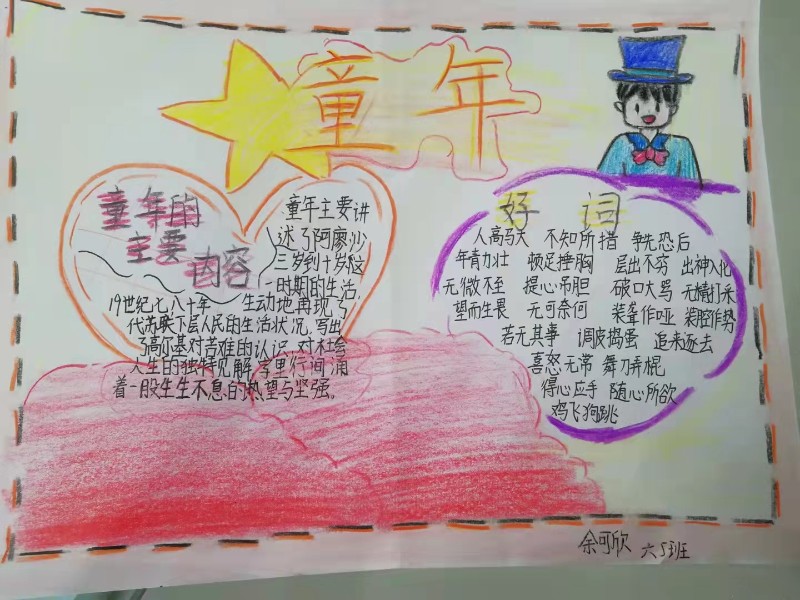 童年
童年的
主要
内容
童年主要讲
述了阿廖沙
三岁到十岁这
一时期的生活,
19世纪七,八十年 生动地再现了
代苏联下层人民的生活状况,写出
了高尔基对苦难的认识 对社会
人生的独特见解,字里行间涌
着一股生生不息的热望与坚强。
好 词
人高马大 不知所措 争先恐后
年青力壮 顿足捶胸 层出不穷 出神入化
无微不至 提心吊胆 破口大骂 无精打采
望而生畏 无可奈何 装聋作哑 装腔作势
若无其事 调皮捣蛋 追来逐去
喜怒无常 舞刀弄棍
得心应手 随心所欲
鸡飞狗跳
余可欣 六5班